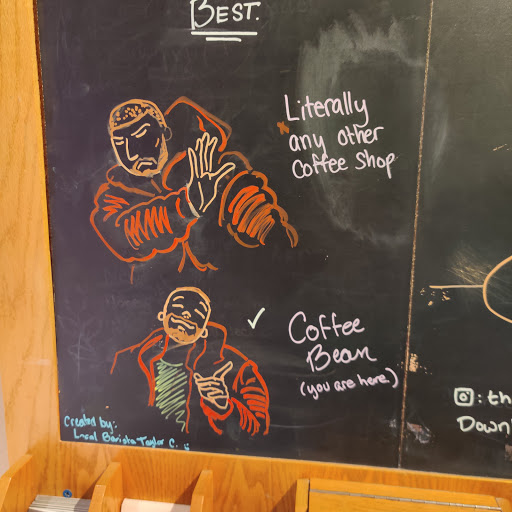 BEST.
Literally
any other
Coffee Shop
Coffee
Bean
(you are here)
Created by:
Local Barista Taylor C.
: th
Down